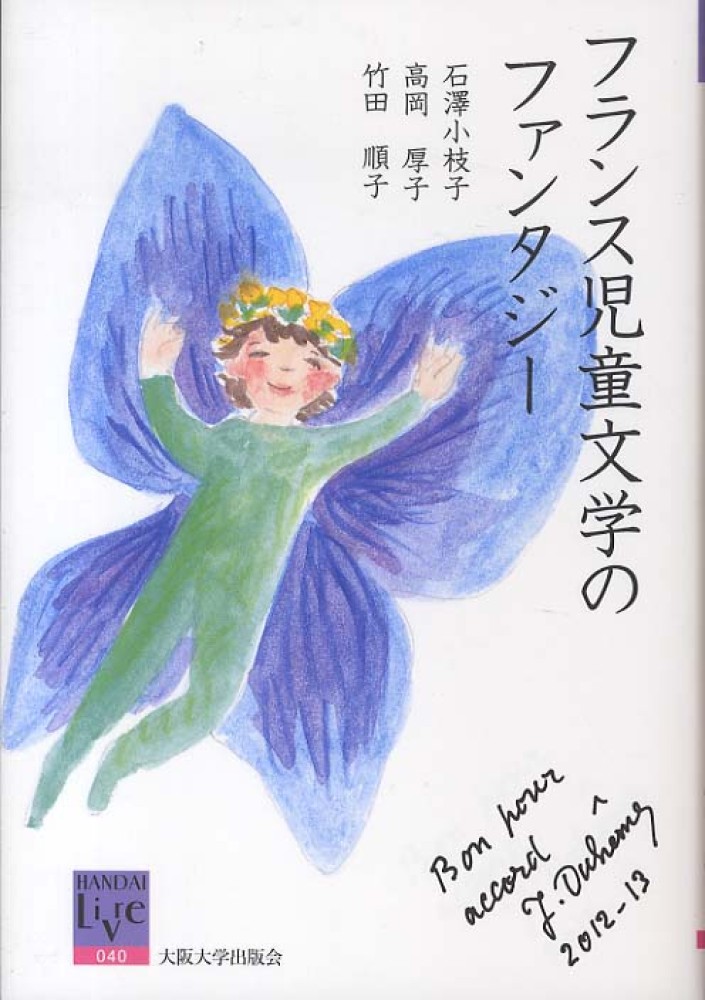 フランス児童文学の
ファンタジー
石澤小枝子
高岡 厚子
竹田 順子
Bon pour
accord
J. Duhême
2012-13
HANDAI
LiVre
040
大阪大学出版会